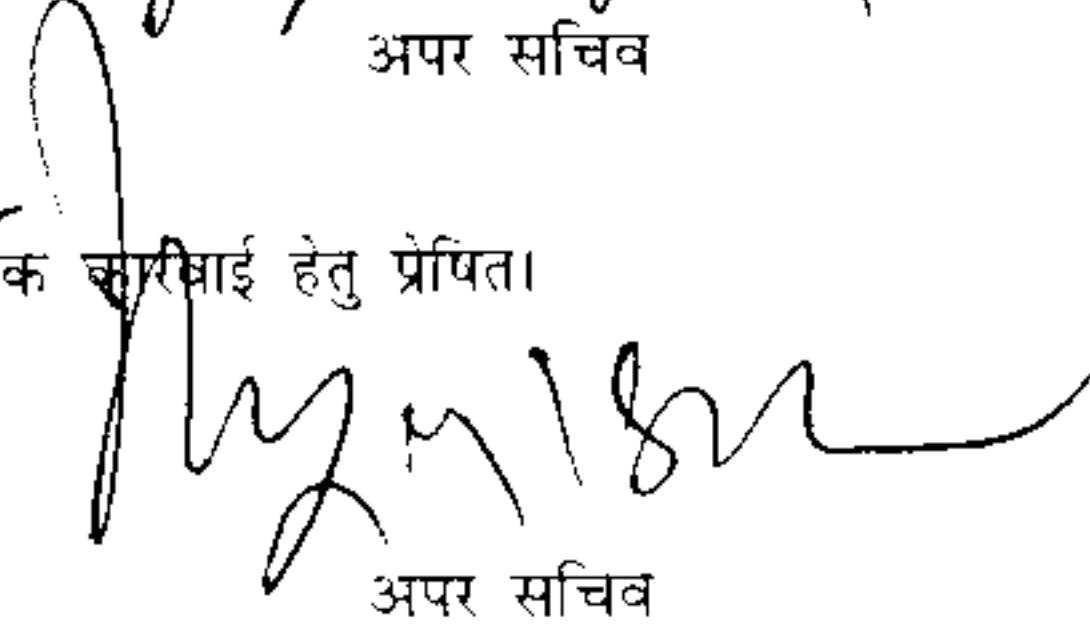 अपर सचिव
क कार्रवाई हेतु प्रेषित।
अपर सचिव